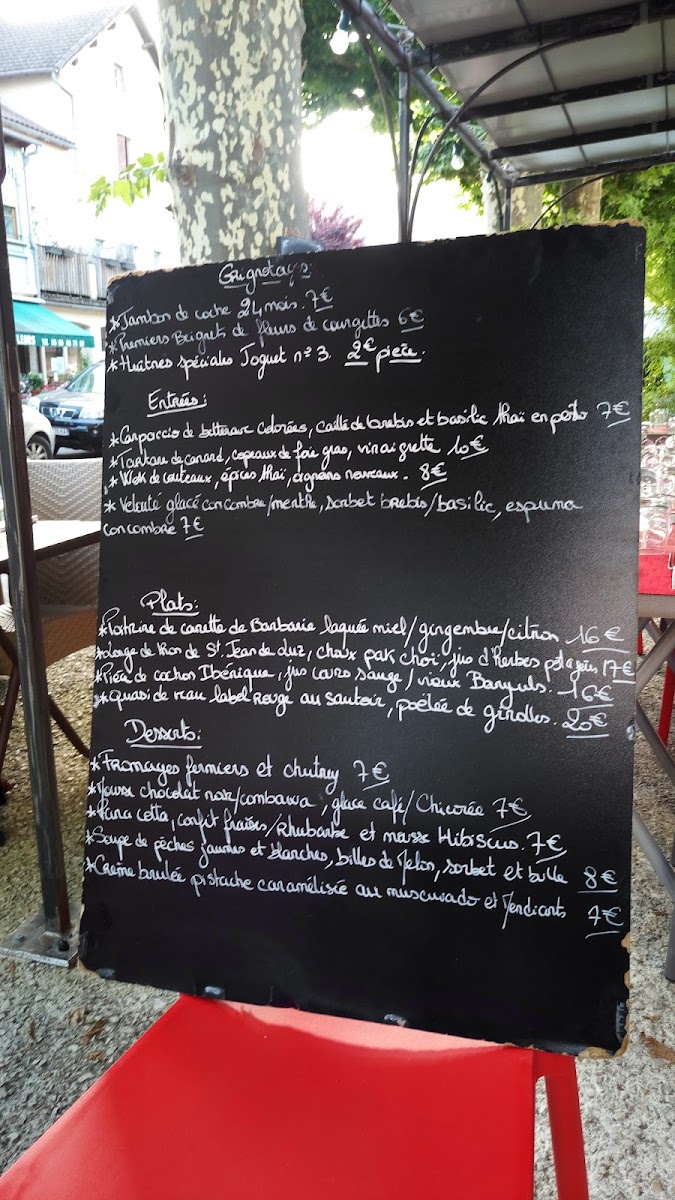 Grignotages
*Jambon de coche 24 mois. 7€
*Premiers Beignets de fleurs de courgettes 6€
*Huîtres spéciales Joguet n°3. 2€ pièce.
Entrées:
*Carpaccio de betterave colorées, caillé de brebis et basilic thaï en pesto 7€
*Tartare de canard, copeaux de foie gras, vinaigrette 10€
*Wok de couteaux, épices thaï, oignons nouveaux. 8€
*Velouté glacé concombre/menthe, sorbet brebis/basilic, espuma
concombre 7€
Plats:
*Poitrine de canette de Barbarie laquée miel/gingembre/citron 16€
*Longe de thon de St Jean de Luz, choux pak choï, jus d'herbes potagères 17€
*Pièce de cochon Ibérique, jus corsé sauge/vieux Banyuls. 16€
*Quasi de veau label Rouge au sautoir, poêlée de girolles. 20€
Desserts:
*Fromages fermiers et chutney 7€
*Mousse chocolat noir/combawa, glace café/Chicorée 7€
*Pana cotta, confit fraises/rhubarbe et mousse Hibiscus. 7€
*Soupe de pêches jaunes et blanches, billes de Melon, sorbet et bulle 8€
*Crème brulée pistache caramélisée au muscuvado et Mendiants 7€